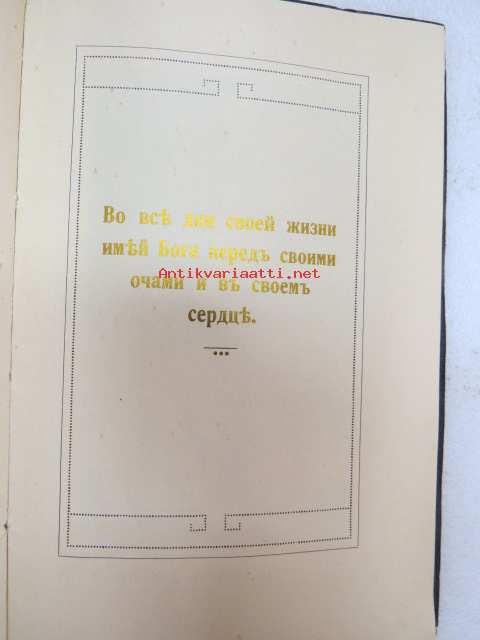 Во всѣ дни своей жизни
имѣй Бога передъ своими
Antikvariaatti.net
очами и въ своемъ
сердцѣ.